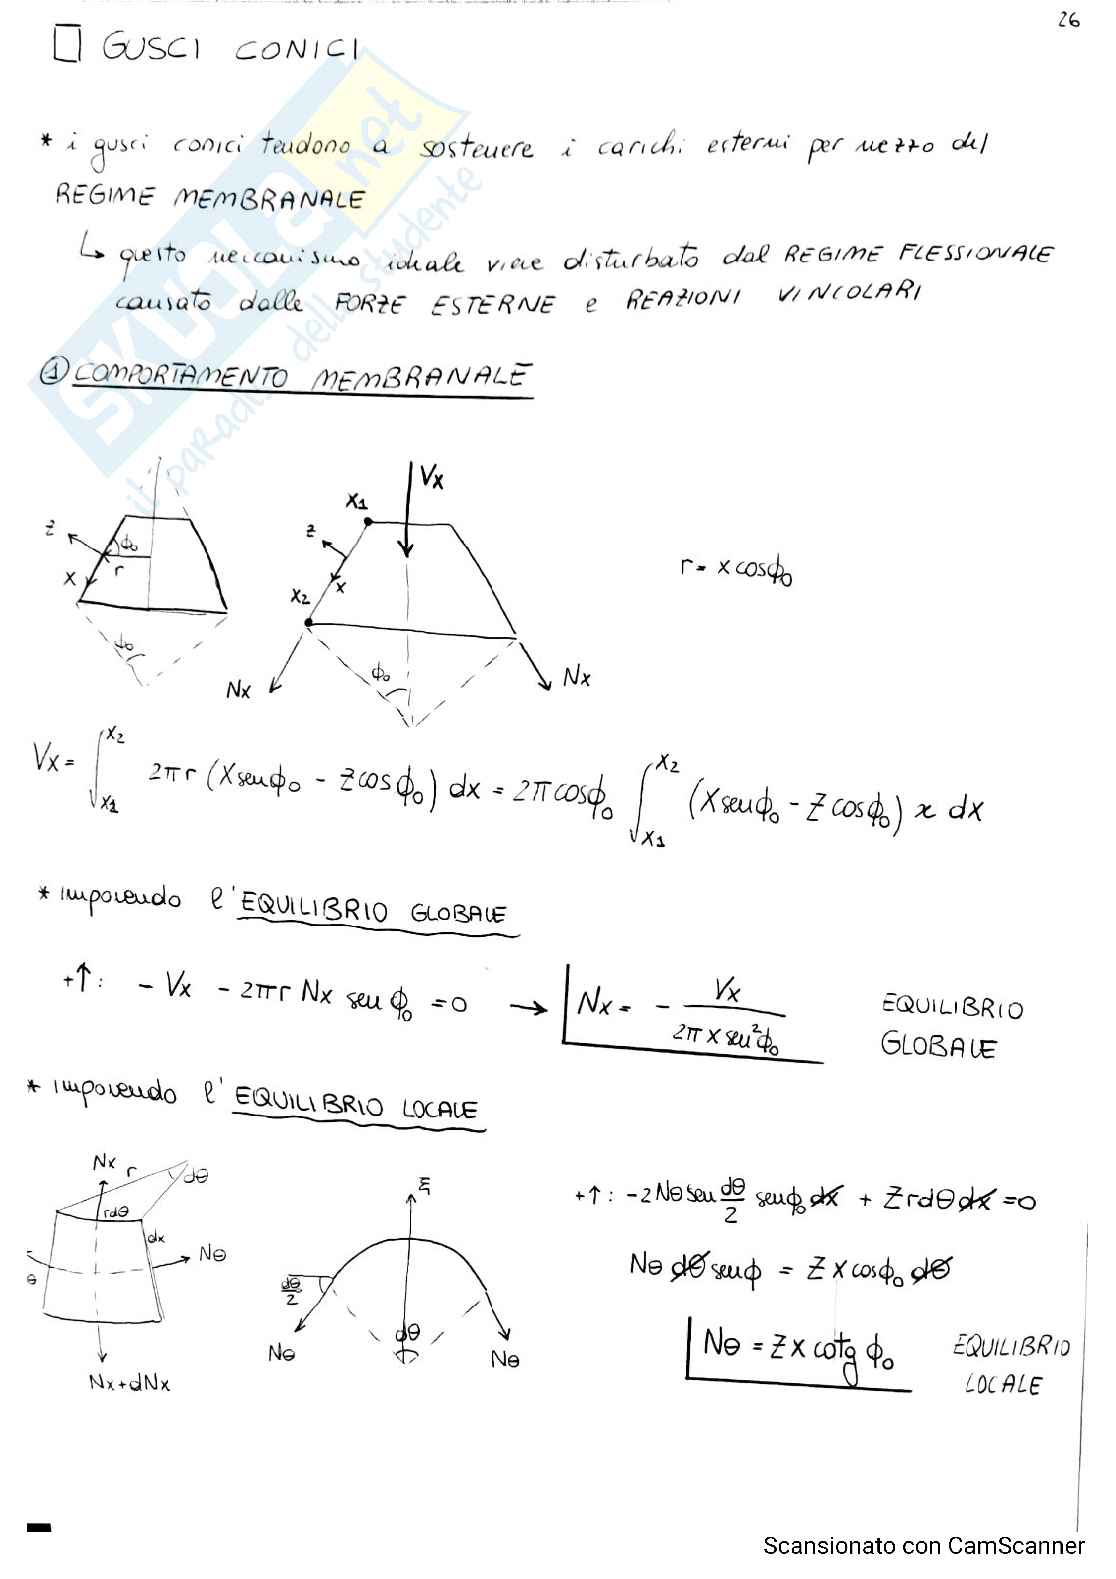 26
GUSCI CONICI
* i gusci conici tendono a sostenere i carichi esterni per mezzo del
REGIME MEMBRANALE
↳ questo meccanismo ideale viene disturbato dal REGIME FLESSIONALE
causato dalle FORZE ESTERNE e REAZIONI VINCOLARI
① COMPORTAMENTO MEMBRANALE
SKUOLA.net
il paradiso dello studente
z x r ϕ₀ ϕ₀
Vx X1 z x X2 ϕ₀ Nx Nx
r = x cosϕ₀
Vx = ∫_{X1}^{X2} 2πr (X senϕ₀ - Z cosϕ₀) dx = 2π cosϕ₀ ∫_{X1}^{X2} (X senϕ₀ - Z cosϕ₀) x dx
* imponendo l'EQUILIBRIO GLOBALE
+↑: - Vx - 2πr Nx sen ϕ₀ = 0 → Nx = - Vx / 2π x sen²ϕ₀ EQUILIBRIO
GLOBALE
* imponendo l'EQUILIBRIO LOCALE
Nx r dθ rdθ dx Nθ θ Nx+dNx
ξ dθ/2 dθ Nθ Nθ
+↑: -2Nθ sen dθ/2 senϕ₀ dx + Z r dθ dx = 0
Nθ dθ senϕ = Z x cosϕ₀ dθ
Nθ = Z x cotg ϕ₀ EQUILIBRIO
LOCALE
Scansionato con CamScanner